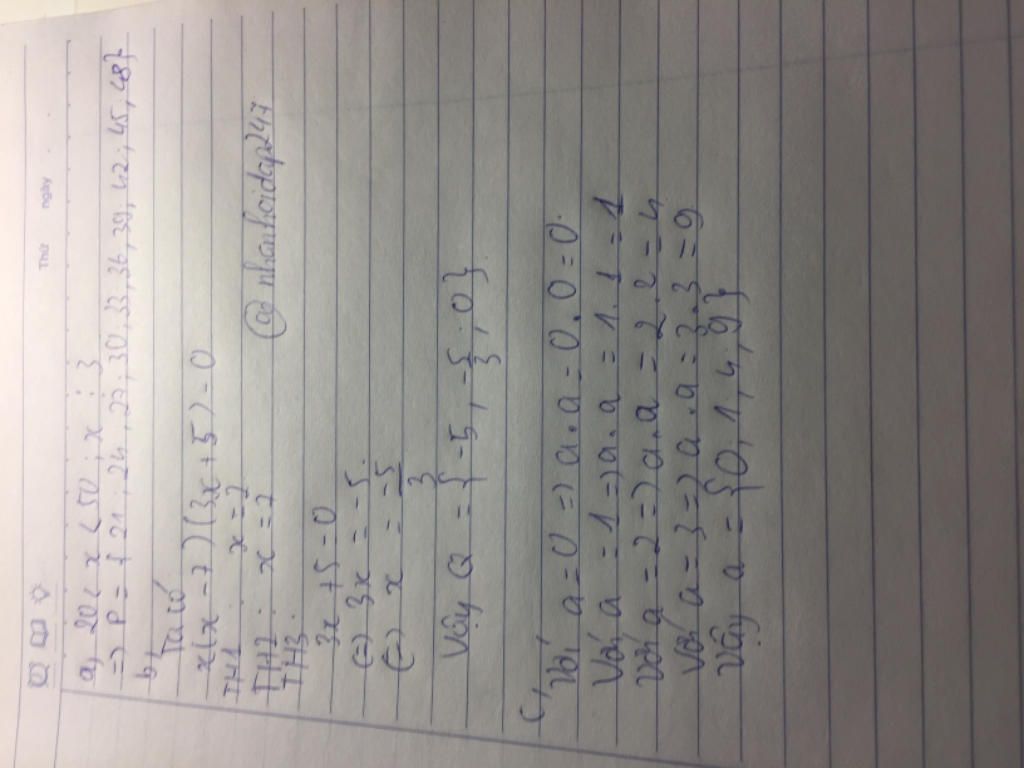 Thứ ngày
a, 20 < x < 50 ; x ⋮ 3
=> P = { 21 ; 24 ; 27 ; 30, 33, 36, 39, 42, 45, 48}
b,
Ta có
x(x - 7)(3x + 5) = 0
TH1. x = 7
TH2. x = 7
@nhanhoidap247
TH3.
3x + 5 = 0
(=) 3x = -5
(=) x = -5
3
Vậy Q = { -5, -5/3, 0}
c,
Với a = 0 => a.a = 0.0 = 0
Với a = 1 => a.a = 1.1 = 1
Với a = 2 => a.a = 2.2 = 4
Với a = 3 => a.a = 3.3 = 9
Vậy a = {0, 1, 4, 9}